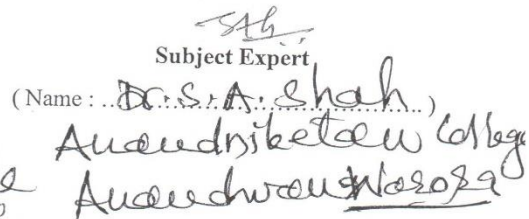 Subject Expert
(Name : ..Dr. S. A. Shah..)
Anandniketan College
Anandwan Warora